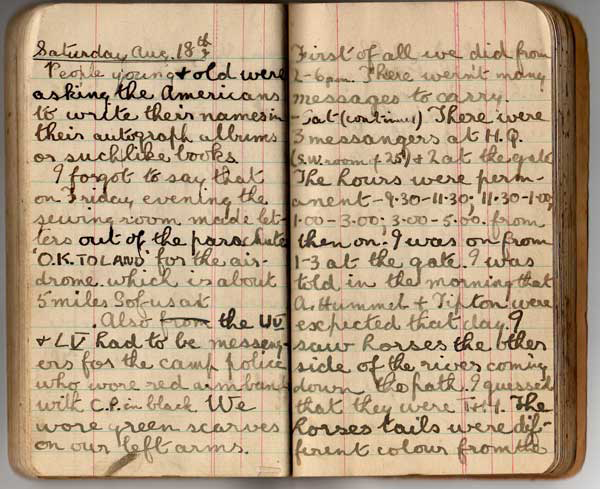 Saturday Aug. 18th
People young & old were
asking the Americans
to write their names in
their autograph albums
or suchlike books.
I forgot to say that
on Friday evening the
sewing room made let-
ters out of the parachute
'O.K. TO LAND' for the air-
drome which is about
5 miles S of us at
. Also from the UV
& LV had to be messeng-
ers for the camp police
who wore red armbands
with C.P. in black We
wore green scarves
on our left arms.
First of all we did from
2-6 p.m. There wern't many
messages to carry.
-Sat (continued) There were
3 messangers at H.Q.
(S.W. room of 25) & 2 at the gate
The hours were perm-
anent - 9.30-11.30; 11.30-1.00;
1.00-3.00; 3.00-5.00. from
then on. I was on from
1-3 at the gate. I was
told in the morning that
A. Hummel & Tipton were
expected that day. I
saw horses the other
side of the river coming
down the path. I guessed
that they were T.H.I. The
horses tails were dif-
ferent colour from the